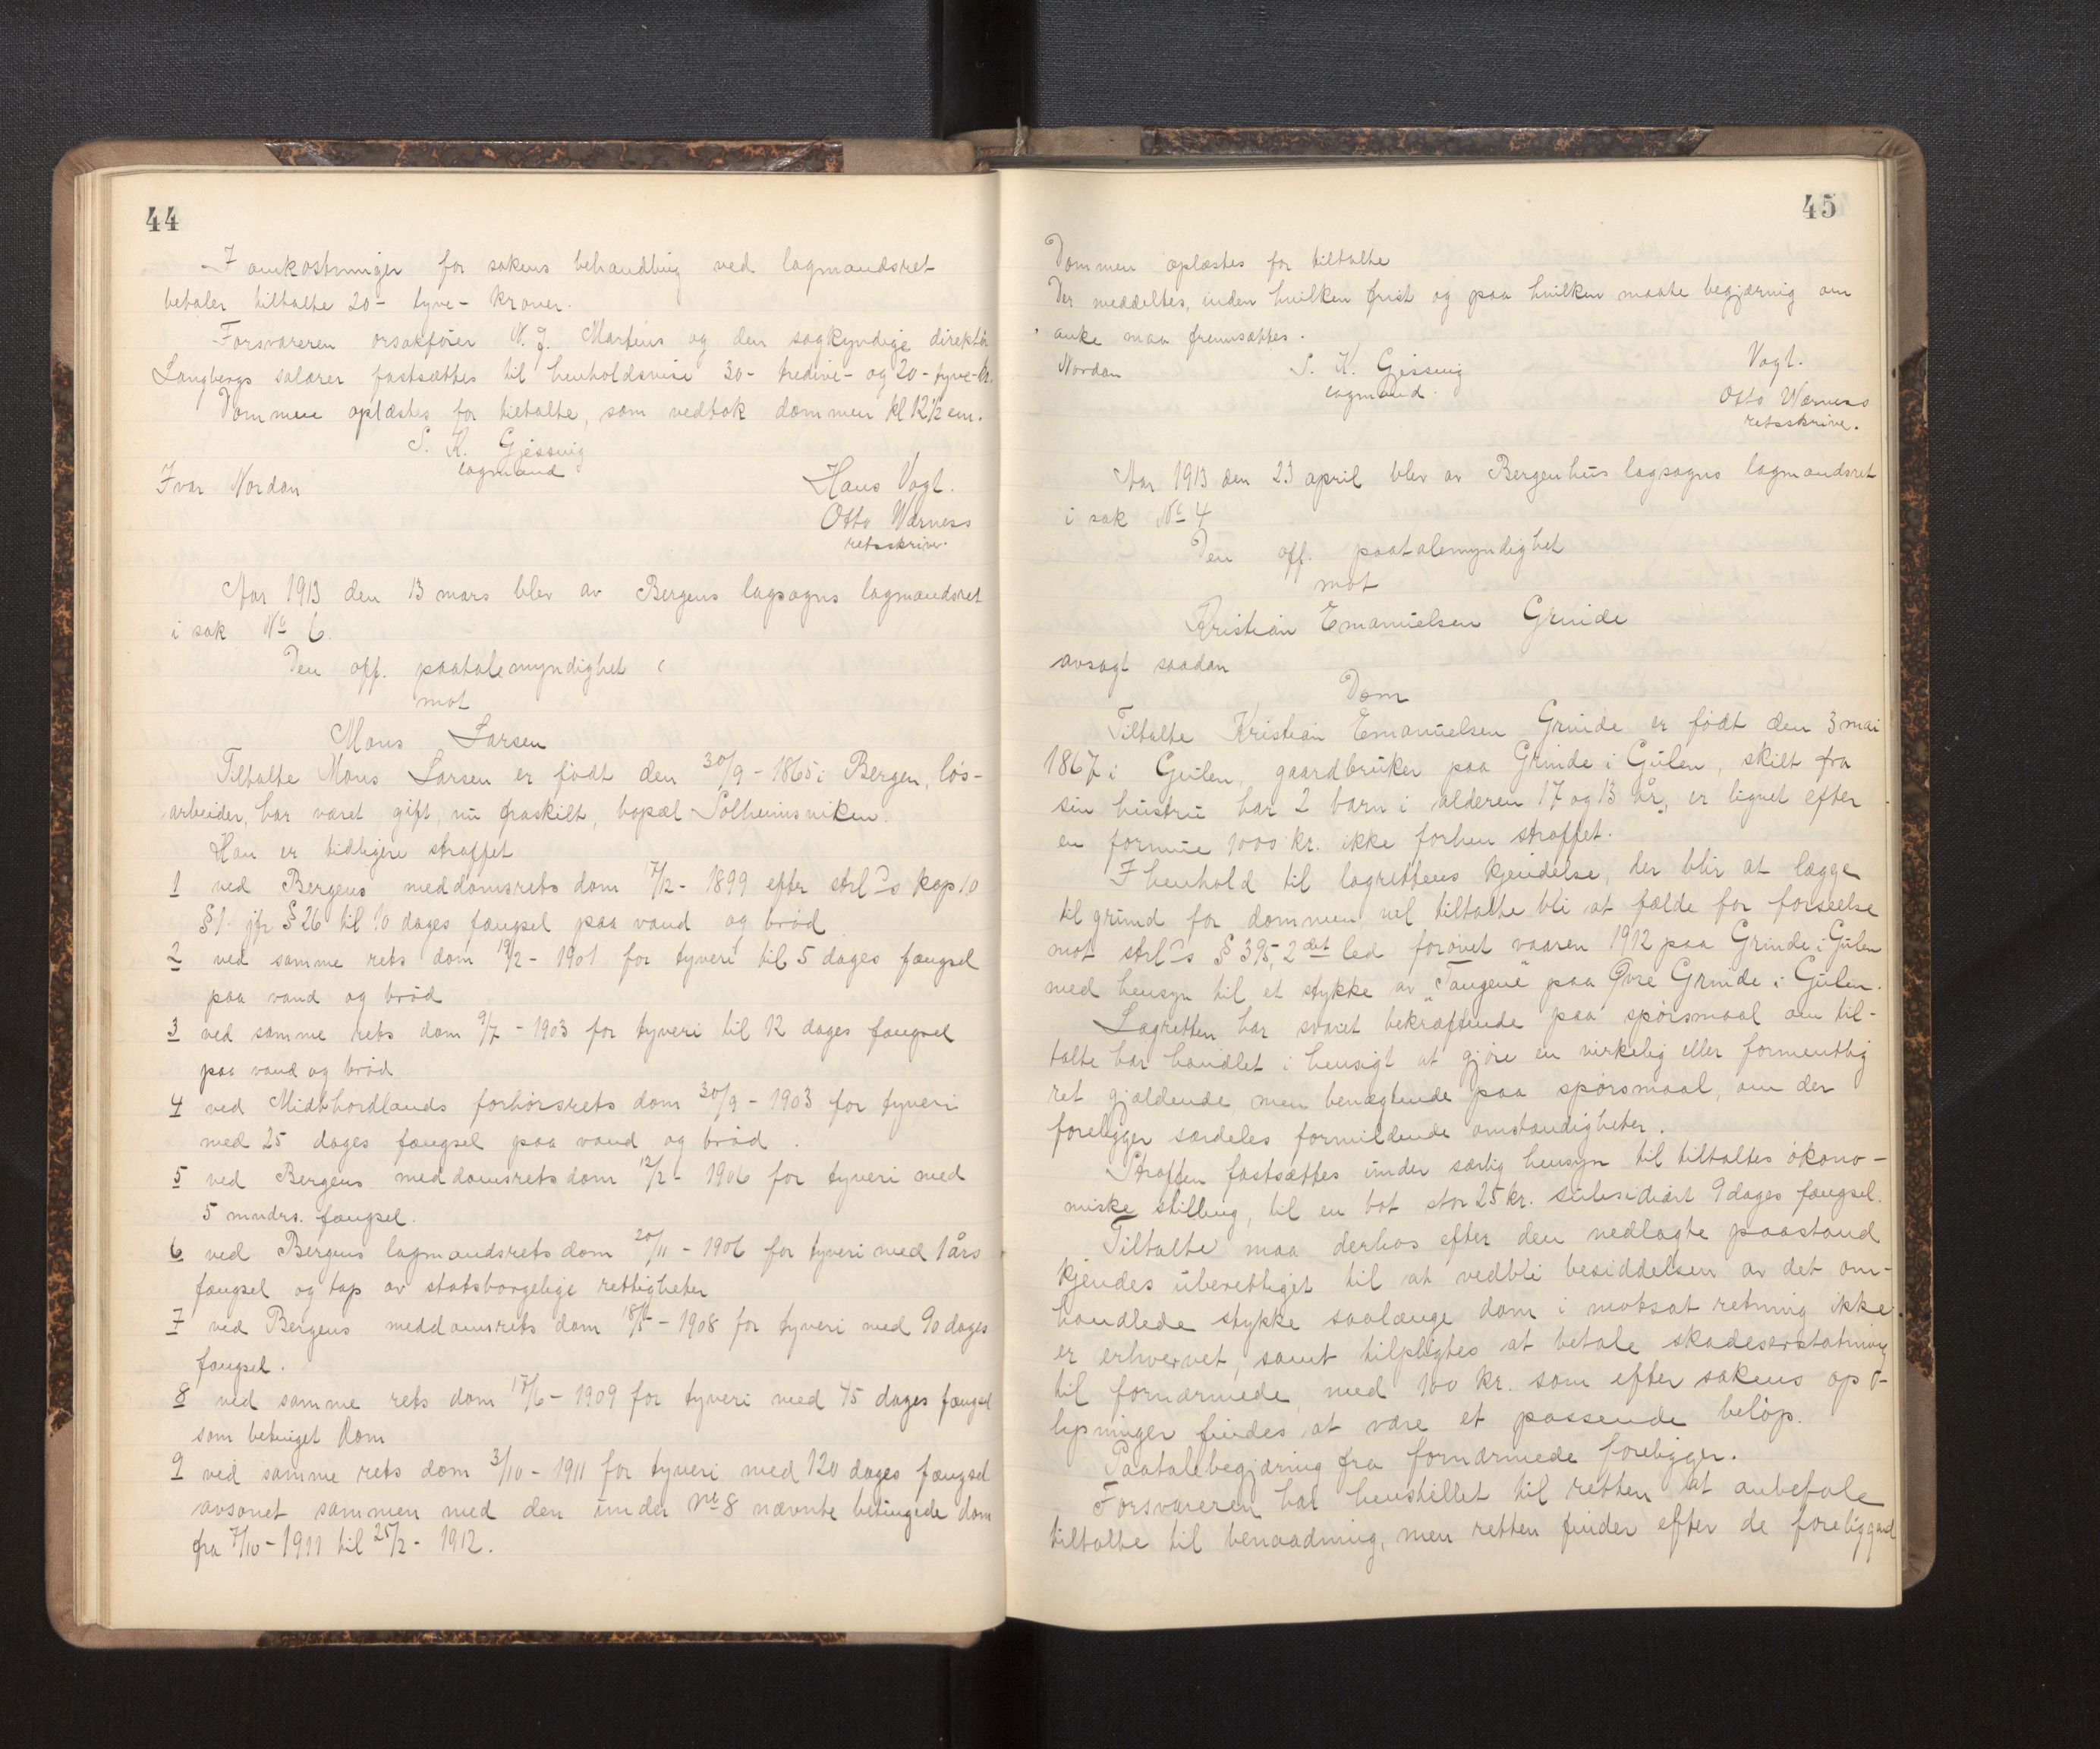 44
I omkostninger for sakens behandling ved lagmandsret
betaler tiltalte 20- tyve- kroner.
Forsvareren orsakfører N. J. Martens og den sagkyndige direktør
Langbergs salærer fastsættes til henholdsvise 30- tredive- og 20- tyve- kr.
Dommen oplæstes for tiltalte, som vedtok dommen kl 12½ em.
S. K. Gjessing
lagmand
Ivar Nordan
Hans Vogt.
Otto Værness
retsskriver.
Aar 1913 den 13 mars blev av Bergens lagsogns lagmandsret
i sak No 6
Den off. paatalemyndighet
mot
Mons Larsen
Tiltalte Mons Larsen er født den 30/9 - 1865 i Bergen, løs-
arbeider, har været gift, nu fraskilt, bopæl Solheimsviken.
Han er tidligere straffet
1 ved Bergens meddomsrets dom 17/2 - 1899 efter strl's kap 10
§ 1 jfr § 26 til 10 dages fængsel paa vand og brød
2 ved samme rets dom 19/2 - 1901 for tyveri til 5 dages fængsel
paa vand og brød
3 ved samme rets dom 9/7 - 1903 for tyveri til 12 dages fængsel
paa vand og brød
4 ved Midthordlands forhørsrets dom 30/9 - 1903 for tyveri
med 25 dages fængsel paa vand og brød.
5 ved Bergens meddomsrets dom 12/2 - 1906 for tyveri med
5 mndrs. fængsel.
6 ved Bergens lagmandsrets dom 20/11 - 1906 for tyveri med 1 års
fængsel og tap av statsborgelige rettigheter
7 ved Bergens meddomsrets dom 18/5 - 1908 for tyveri med 90 dages
fængsel.
8 ved samme rets dom 17/6 - 1909 for tyveri med 45 dages fængsel
som betinget dom
9 ved samme rets dom 3/10 - 1911 for tyveri med 120 dages fængsel
avsonet sammen med den under No 8 nævnte betingede dom
fra 7/10 - 1911 til 25/2 - 1912.
45
Dommen oplæstes for tiltalte
Der meddeltes, inden hvilken frist og paa hvilken maate begjæring om
anke maa fremsættes.
Nordan
S. K. Gjessing
lagmand.
Vogt.
Otto Værness
retsskrive.
Aar 1913 den 23 april blev av Bergenhus lagsogns lagmandsret
i sak No 4
Den off. paatalemyndighet
mot
Kristian Emanuelsen Grinde
avsagt saadan
Dom
Tiltalte Kristian Emanuelsen Grinde er født den 3 mai
1867 i Gulen, gaardbruker paa Grinde i Gulen, skilt fra
sin hustru har 2 barn i alderen 17 og 13 år, er lignet efter
en formue 1000 kr. ikke forhen straffet.
I henhold til lagrettens kjendelse, der blir at lægge
til grund for dommen vel tiltalte bli at fælde for forseelse
mot strl's § 395, 2det led forøvet vaaren 1912 paa Grinde i Gulen
med hensyn til et stykke av "Tangene" paa Øvre Grinde i Gulen.
Lagretten har svaret bekræftende paa spørsmaal om til-
talte har handlet i hensigt at gjøre en virkelig eller formentlig
ret gjældende, men benegtende paa spørsmaal, om der
foreligger særdeles formildende omstændigheter.
Straffen fastsættes under særlig hensyn til tiltaltes økono-
miske stilling, til en bot stor 25 kr. subsidiært 9 dages fængsel.
Tiltalte maa derhos efter den nedlagte paastand
kjendes uberettiget til at vedbli besiddelsen av det om-
handlede stykke saalænge dom i motsat retning ikke
er erhvervet, samt tilpligtes at betale skadeserstatning
til fornærmede med 100 kr. som efter sakens op-
lysninger findes at være et passende beløp.
Paatalebegjæring fra fornærmede foreligger.
Forsvareren har henstillet til retten at anbefale
tiltalte til benaadning, men retten finder efter de foreliggend